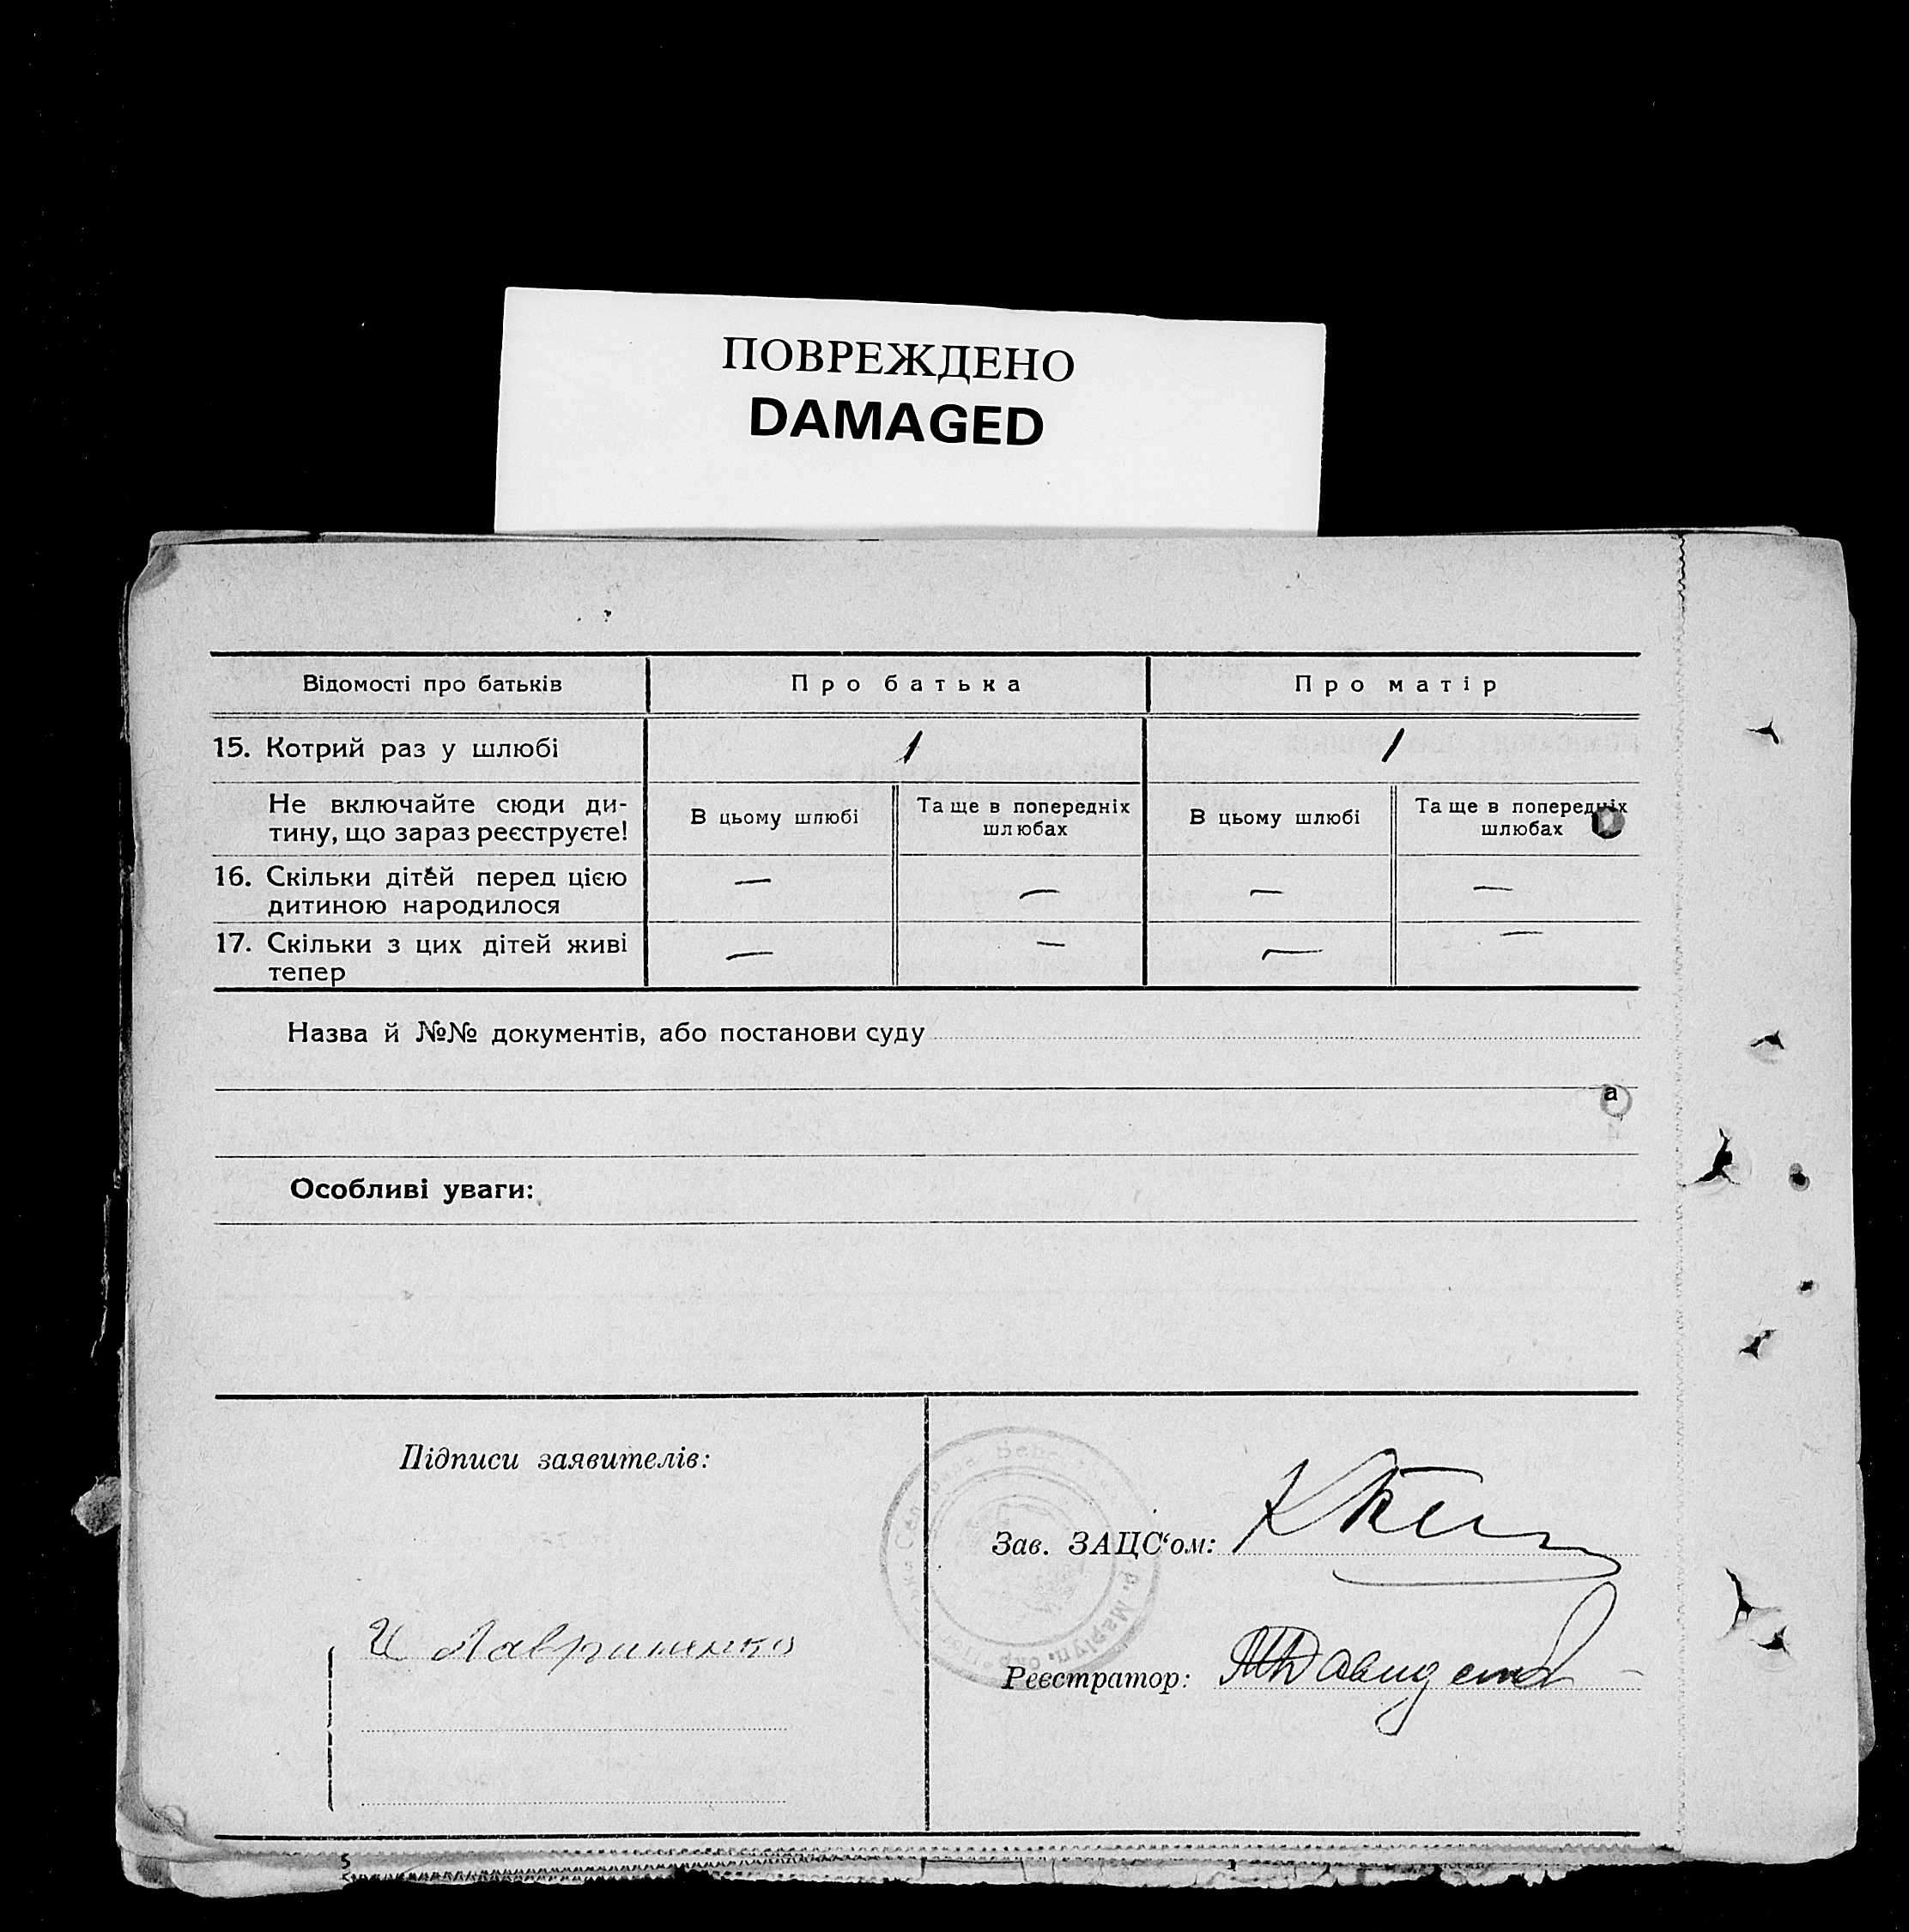 ПОВРЕЖДЕНО
DAMAGED
Відомості про батьків
Про батька
Про матір
15. Котрий раз у шлюбі
1
1
Не включайте сюди ди-
тину, що зараз реєструєте!
В цьому шлюбі
Та ще в попередніх
шлюбах
В цьому шлюбі
Та ще в попередніх
шлюбах
16. Скільки дітей перед цією
дитиною народилося
— — — —
17. Скільки з цих дітей живі
тепер
— — — —
Назва й №№ документів, або постанови суду
а
Особливі уваги:
Підписи заявителів:
Зав. ЗАЦС‘ом:
р. Маріуп. окр.
Реєстратор: